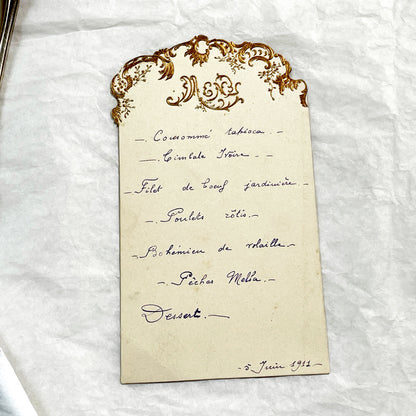 Menu
Consommé tapioca
Timbale Ivoire
Filet de bœuf jardinière
Poulets rôtis
Bohémien de volaille
Pêches Melba
Dessert
5 Juin 1911